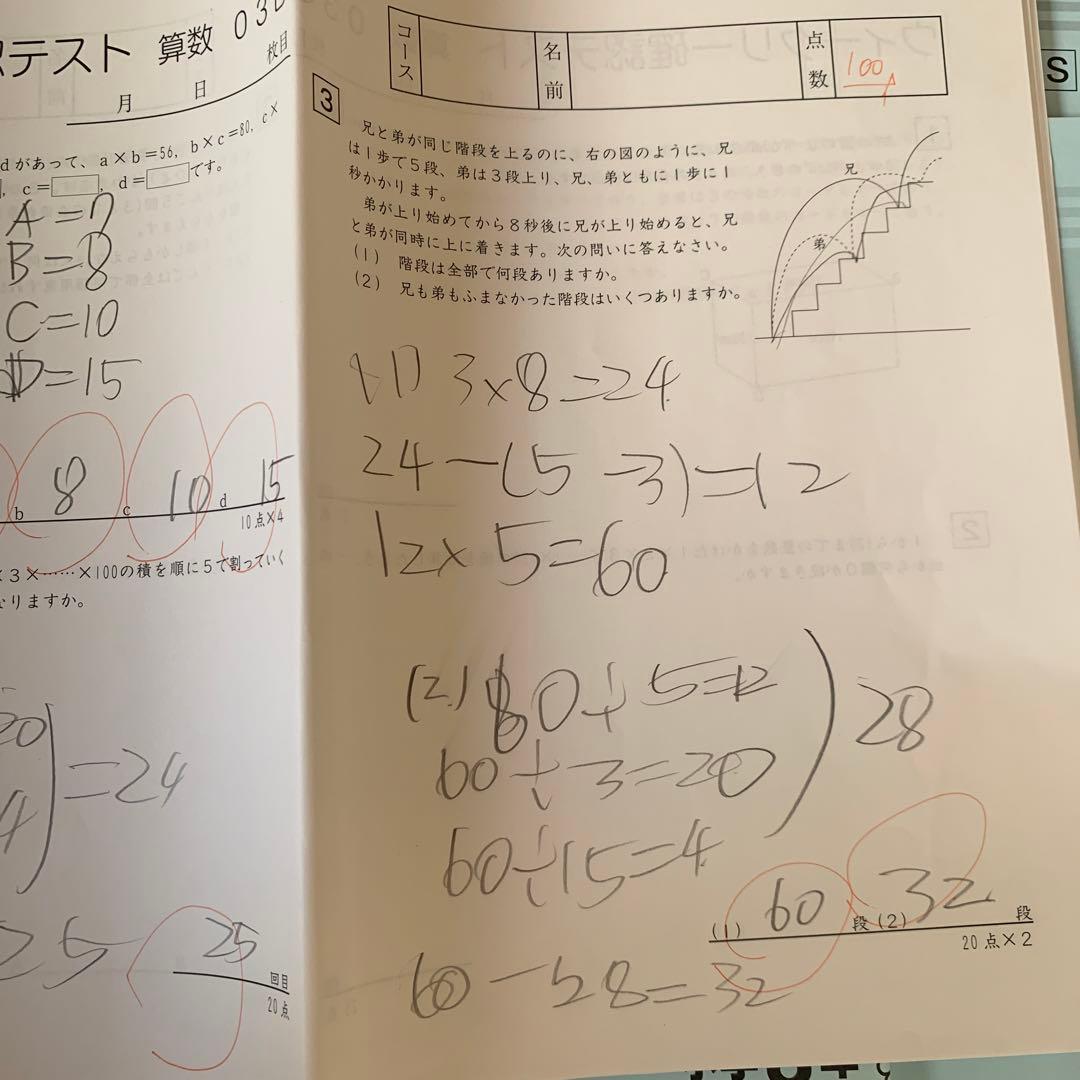 テスト 算数 03
枚目
月 日
dがあって、a×b＝56, b×c＝80, c×
, c＝ , d＝ です。
A=7
B=8
C=10
D=15
b 8 c 10 d 15
10点×4
×3×……×100の積を順に5で割っていく
なりますか。
20
4
=24
25
25
回目
20点
コース
名前
点数
100
3
兄と弟が同じ階段を上るのに、右の図のように、兄
は1歩で5段、弟は3段上り、兄、弟ともに1歩に1
秒かかります。
弟が上り始めてから8秒後に兄が上り始めると、兄
と弟が同時に上に着きます。次の問いに答えなさい。
(1) 階段は全部で何段ありますか。
(2) 兄も弟もふまなかった階段はいくつありますか。
兄
弟
(1) 3×8=24
24-(5-3)=12
12×5=60
(2) 60÷5=12
60÷3=20
28
60÷15=4
(1) 60 段 (2) 32 段
20点×2
60-28=32
S